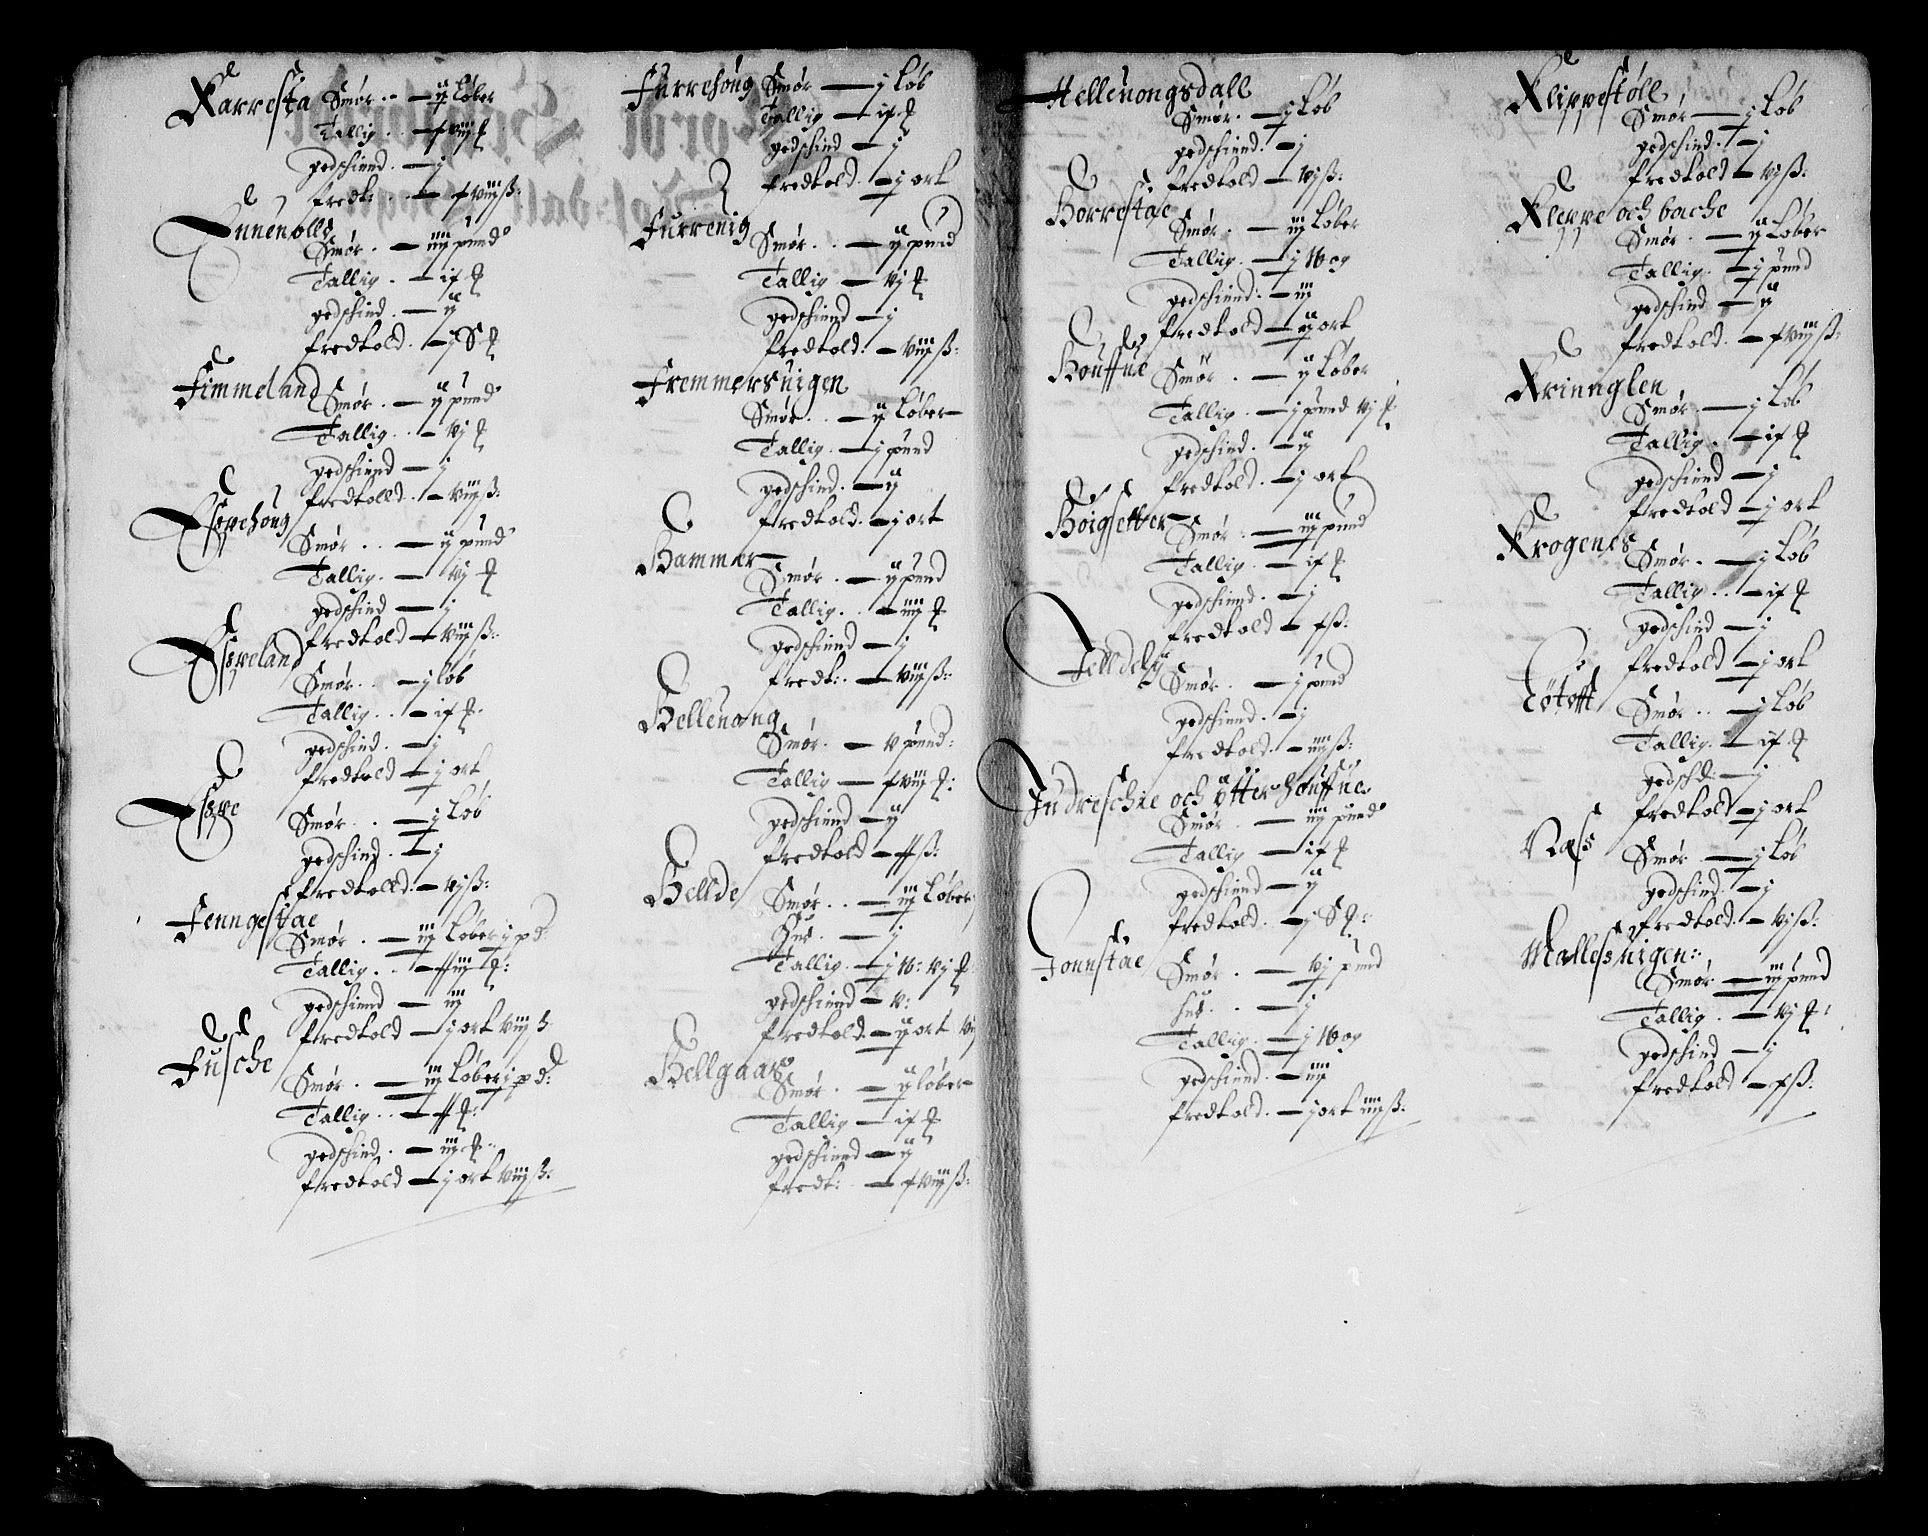 Karresta Smør .. — ij Løber
Tallig . . — fviij ℔
gedschiend . — j
fredt: . . — fviijß:
Ennenolld
Smør . — iiij pund
Tallig . — if ℔
gedschind . — ij
fredtold . — j S ℔
Fimmeland
Smør . — ij pund
Tallig . . — vj ℔
gedschiend — j
fredtolld . — viijß:
Espehoug
Smør . . — ij pund
Tallig . — vj ℔
gedschind — j
fredtold — viijß:
Espeland
Smør . . — j løb
Tallig . . — if ℔
gedschind . — j
fredtold — j ort
Espe
Smør . . — j Løb
gedschind . — j
fredtolld . — vjß:
Fenngestae
Smør . — iij Løber j pd
Tallig . . — ffiij ℔:
gedschiend — iij
fredtold — j ort viijß
Fusche
Smør . — iij Løber j pd:
Tallig . . — ff ℔:
gedschind . — iij ℔:
fredtold — j ort viijß:
Furrehoug Smør — j Løb
Tallig — if ℔
gedschind — j
fredtold . — j ort
Furrenig
Smør . . — ij pund
Tallig — vj ℔
gedschiend — j
fredtold: — viijß:
Fremmersuigen
Smør . . — ij Løber
Tallig . — j pund
gedschind . — ij
fredtold . — j ort
Hammer
Smør . — ij pund
Tallig . . — iiij ℔
gedschiend — j
fredt: . — viijß:
Hellenong
Smør . — v pund:
Tallig — fviij ℔:
gedschiend — ij
fredtold — ffß:
Hellde
Smør . . — iij Løber
Hud . — j
Tallig — j W: vj ℔
gedschiend — v:
fredtold . — ij ort
Hellgaas
Smør . — ij løber
Tallig — if ℔
gedschiend — ij
fredt: . — fviijß:
Hellenongsdall
Smør . — j Løb
gedschiend . — j
fredtold — vjß:
Horrestae
Smør . — iij Løber
Tallig . — j Wog
gedschiend . — iij
fredtold — ij ort
Houffue
Smør . — ij Løber
Tallig . — j pund vj ℔
gedschind . — ij
fredtold . — j ort
Hoigsetter
Smør . — iij pund
Tallig . — if ℔
gedschiend . — j
fredtold — fß:
Jelldely
Smør . — j pund
gedschiend . — j
fredtold . — iiijß:
Indreschie och ytter houffue
Smør . — iiij pund
Tallig — if ℔
gedschiend — ij
fredtold . — j S ℔:
Jonnstae
Smør . — vj pund
hud . . — j
Tallig . — j Wog
gedschiend . — iiij
fredtold . — j ort iiijß:
Klippestoll
Smør — j Løb
gedschind . — j
fredtold — vjß:
Kleppe och bache
Smør . — ij Løber
Tallig . — j pund
gedschind — ij
fredtold . — fviijß:
Krinnglen
Smør . — j Løb
Tallig . — if ℔
gedschiend — j
fredtold — j ort
Krogenes
Smør . — j Løb
Tallig . . — if ℔
gedschind — j
fredtold — j ort
Løtofft
Smør . . — j Løb
Tallig . — if ℔
gedschd: — j
fredtold — j ort
Næs
Smør . — j Løb
gedschind . — j
fredtold . — vjß:
Mallesuigen:
Smør — iij pund
Tallig . — vj ℔:
gedschind — j
fredtold — fß: